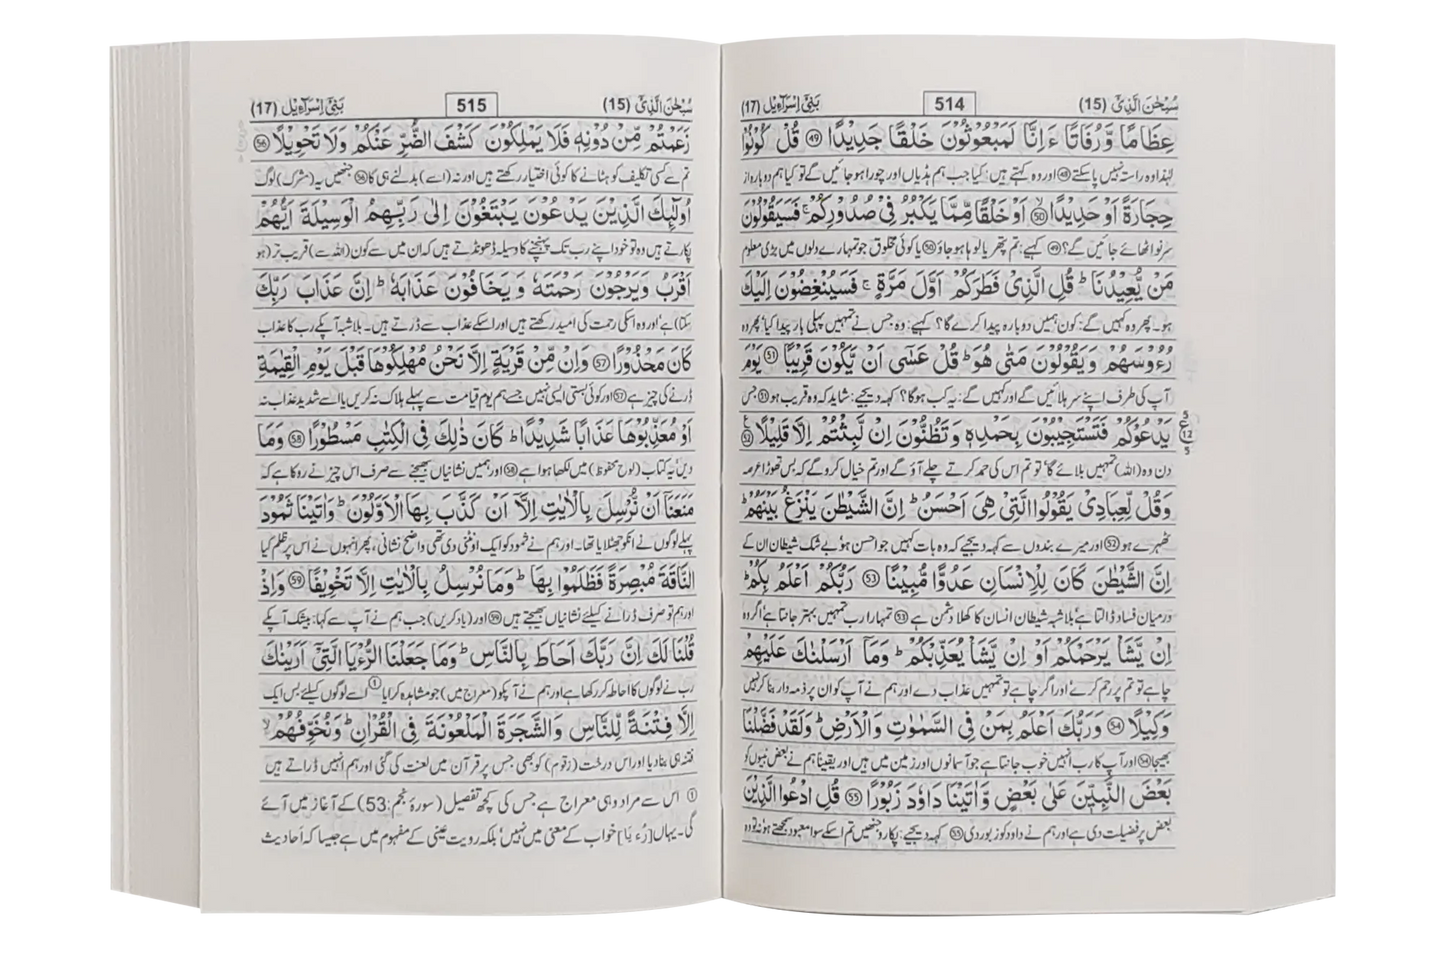 سُبْحٰنَ الَّذِیْ (15)
514
بَنِیْٓ اِسْرَآءِیْل (17)
عِظَامًا وَّرُفَاتًا ءَاِنَّا لَمَبْعُوْثُوْنَ خَلْقًا جَدِیْدًا ﴿49﴾ قُلْ كُوْنُوْا
لہٰذا وہ راستہ نہیں پا سکتے ﴿48﴾ اور وہ کہتے ہیں: کیا جب ہم ہڈیاں اور چورا ہو جائیں گے تو کیا ہم دوبارہ از
حِجَارَةً اَوْ حَدِیْدًا ﴿50﴾ اَوْ خَلْقًا مِّمَّا یَكْبُرُ فِیْ صُدُوْرِكُمْ ۚ فَسَیَقُوْلُوْنَ
سر نو اٹھائے جائیں گے؟ ﴿49﴾ کہیے: تم پتھر یا لوہا ہو جاؤ ﴿50﴾ یا کوئی مخلوق جو تمہارے دلوں میں بڑی معلوم
مَنْ یُّعِیْدُنَا ؕ قُلِ الَّذِیْ فَطَرَكُمْ اَوَّلَ مَرَّةٍ ۚ فَسَیُنْغِضُوْنَ اِلَیْكَ
ہو۔ پھر وہ کہیں گے: کون ہمیں دوبارہ پیدا کرے گا؟ کہیے: وہ جس نے تمہیں پہلی بار پیدا کیا' پھر وہ
رُءُوْسَهُمْ وَیَقُوْلُوْنَ مَتٰی هُوَ ؕ قُلْ عَسٰۤی اَنْ یَّكُوْنَ قَرِیْبًا ﴿51﴾ یَوْمَ
آپ کی طرف اپنے سر ہلائیں گے اور کہیں گے: یہ کب ہوگا؟ کہہ دیجیے: شاید کہ وہ قریب ہو ﴿51﴾ جس
یَدْعُوْكُمْ فَتَسْتَجِیْبُوْنَ بِحَمْدِهٖ وَتَظُنُّوْنَ اِنْ لَّبِثْتُمْ اِلَّا قَلِیْلًا ﴿52﴾
5
ع
12
5
دن وہ (اللہ) تمہیں بلائے گا' تو تم اس کی حمد کرتے چلے آؤ گے اور تم خیال کرو گے کہ بس تھوڑا عرصہ
وَقُلْ لِّعِبَادِیْ یَقُوْلُوا الَّتِیْ هِیَ اَحْسَنُ ؕ اِنَّ الشَّیْطٰنَ یَنْزَغُ بَیْنَهُمْ ؕ
ٹھہرے ہو ﴿52﴾ اور میرے بندوں سے کہہ دیجیے کہ وہ بات کہیں جو احسن ہو' بے شک شیطان ان کے
اِنَّ الشَّیْطٰنَ كَانَ لِلْاِنْسَانِ عَدُوًّا مُّبِیْنًا ﴿53﴾ رَبُّكُمْ اَعْلَمُ بِكُمْ ؕ
درمیان فساد ڈالتا ہے' بلاشبہ شیطان انسان کا کھلا دشمن ہے ﴿53﴾ تمہارا رب تمہیں بہتر جانتا ہے' اگر وہ
اِنْ یَّشَاْ یَرْحَمْكُمْ اَوْ اِنْ یَّشَاْ یُعَذِّبْكُمْ ؕ وَمَاۤ اَرْسَلْنٰكَ عَلَیْهِمْ
چاہے تو تم پر رحم کرے' اور اگر چاہے تو تمہیں عذاب دے اور ہم نے آپ کو ان پر ذمہ دار بنا کر نہیں
وَكِیْلًا ﴿54﴾ وَرَبُّكَ اَعْلَمُ بِمَنْ فِی السَّمٰوٰتِ وَالْاَرْضِ ؕ وَلَقَدْ فَضَّلْنَا
بھیجا ﴿54﴾ اور آپ کا رب انہیں خوب جانتا ہے جو آسمانوں اور زمین میں ہیں اور یقیناً ہم نے بعض نبیوں کو
بَعْضَ النَّبِیّٖنَ عَلٰی بَعْضٍ وَّاٰتَیْنَا دَاوٗدَ زَبُوْرًا ﴿55﴾ قُلِ ادْعُوا الَّذِیْنَ
بعض پر فضیلت دی ہے اور ہم نے داود کو زبور دی ﴿55﴾ کہہ دیجیے: پکارو جنھیں تم اسکے سوا معبود سمجھتے ہو' تو وہ
سُبْحٰنَ الَّذِیْ (15)
515
بَنِیْٓ اِسْرَآءِیْل (17)
زَعَمْتُمْ مِّنْ دُوْنِهٖ فَلَا یَمْلِكُوْنَ كَشْفَ الضُّرِّ عَنْكُمْ وَلَا تَحْوِیْلًا ﴿56﴾
تم سے کسی تکلیف کو ہٹانے کا کوئی اختیار رکھتے ہیں اور نہ (اسے) بدلنے ہی کا ﴿56﴾ جنھیں یہ (مشرک) لوگ
اُولٰٓئِكَ الَّذِیْنَ یَدْعُوْنَ یَبْتَغُوْنَ اِلٰی رَبِّهِمُ الْوَسِیْلَةَ اَیُّهُمْ
پکارتے ہیں وہ تو خود اپنے رب تک پہنچنے کا وسیلہ ڈھونڈتے ہیں کہ ان میں سے کون (اللہ سے) قریب تر (ہو
اَقْرَبُ وَیَرْجُوْنَ رَحْمَتَهٗ وَیَخَافُوْنَ عَذَابَهٗ ؕ اِنَّ عَذَابَ رَبِّكَ
سکتا) ہے' اور وہ اسکی رحمت کی امید رکھتے ہیں اور اسکے عذاب سے ڈرتے ہیں۔ بلاشبہ آپکے رب کا عذاب
كَانَ مَحْذُوْرًا ﴿57﴾ وَاِنْ مِّنْ قَرْیَةٍ اِلَّا نَحْنُ مُهْلِكُوْهَا قَبْلَ یَوْمِ الْقِیٰمَةِ
ڈرنے کی چیز ہے ﴿57﴾ اور کوئی بستی ایسی نہیں جسے ہم یوم قیامت سے پہلے ہلاک نہ کریں یا اسے شدید عذاب نہ
اَوْ مُعَذِّبُوْهَا عَذَابًا شَدِیْدًا ؕ كَانَ ذٰلِكَ فِی الْكِتٰبِ مَسْطُوْرًا ﴿58﴾ وَمَا
دیں' یہ کتاب (لوح محفوظ) میں لکھا ہوا ہے ﴿58﴾ اور ہمیں نشانیاں بھیجنے سے صرف اس چیز نے روکا ہے کہ
مَنَعَنَاۤ اَنْ نُّرْسِلَ بِالْاٰیٰتِ اِلَّاۤ اَنْ كَذَّبَ بِهَا الْاَوَّلُوْنَ ؕ وَاٰتَیْنَا ثَمُوْدَ
پہلے لوگوں نے انکو جھٹلایا تھا۔ اور ہم نے ثمود کو ایک اونٹنی دی تھی واضح نشانی، پھر انہوں نے اس پر ظلم کیا
النَّاقَةَ مُبْصِرَةً فَظَلَمُوْا بِهَا ؕ وَمَا نُرْسِلُ بِالْاٰیٰتِ اِلَّا تَخْوِیْفًا ﴿59﴾ وَاِذْ
اور ہم تو صرف ڈرانے کیلئے نشانیاں بھیجتے ہیں ﴿59﴾ اور (یاد کریں) جب ہم نے آپ سے کہا: بیشک آپکے
قُلْنَا لَكَ اِنَّ رَبَّكَ اَحَاطَ بِالنَّاسِ ؕ وَمَا جَعَلْنَا الرُّءْیَا الَّتِیْۤ اَرَیْنٰكَ
رب نے لوگوں کا احاطہ کر رکھا ہے اور ہم نے آپکو (معراج میں) جو مشاہدہ کرایا ① اسے لوگوں کیلئے بس ایک
اِلَّا فِتْنَةً لِّلنَّاسِ وَالشَّجَرَةَ الْمَلْعُوْنَةَ فِی الْقُرْاٰنِ ؕ وَنُخَوِّفُهُمْ ۙ
فتنہ ہی بنا دیا اور اس درخت (زقوم) کو بھی جس پر قرآن میں لعنت کی گئی اور ہم انہیں ڈراتے ہیں
① اس سے مراد وہی معراج ہے جس کی کچھ تفصیل (سورۂ نجم:53) کے آغاز میں آئے
گی۔ یہاں [رُءْیَا] خواب کے معنی میں نہیں' بلکہ رویت عینی کے مفہوم میں ہے جیسا کہ احادیث